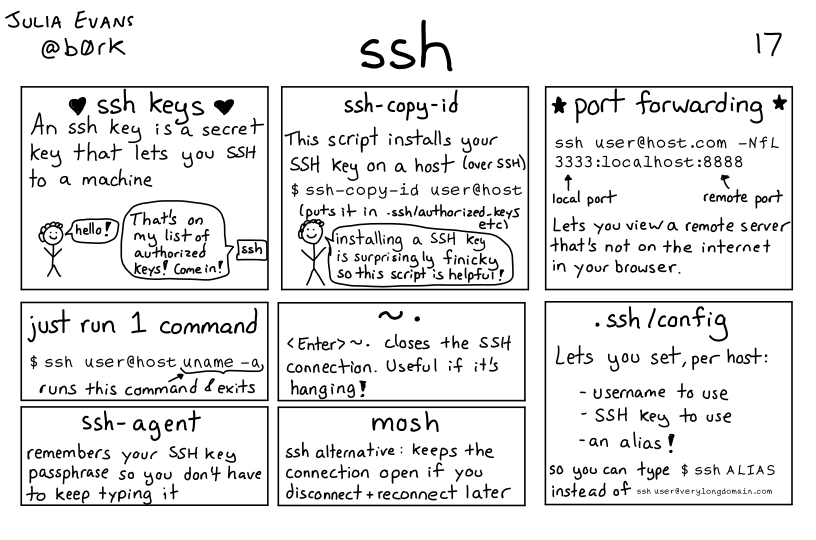 JULIA EVANS
@b0rk
ssh
17
♥ ssh keys ♥
An ssh key is a secret
key that lets you SSH
to a machine
hello!
That's on
my list of
authorized
keys! Come in!
ssh
ssh-copy-id
This script installs your
SSH key on a host (over SSH)
$ ssh-copy-id user@host
(puts it in .ssh/authorized_keys
etc)
installing a SSH key
is surprisingly finicky
so this script is helpful!
★ port forwarding ★
ssh user@host.com -NfL
3333:localhost:8888
local port
remote port
Lets you view a remote server
that's not on the internet
in your browser.
just run 1 command
$ ssh user@host uname -a
runs this command & exits
~.
<Enter>~. closes the SSH
connection. Useful if it's
hanging!
.ssh/config
Lets you set, per host:
- username to use
- SSH key to use
- an alias!
so you can type $ ssh ALIAS
instead of ssh user@verylongdomain.com
ssh-agent
remembers your SSH key
passphrase so you don't have
to keep typing it
mosh
ssh alternative: keeps the
connection open if you
disconnect + reconnect later